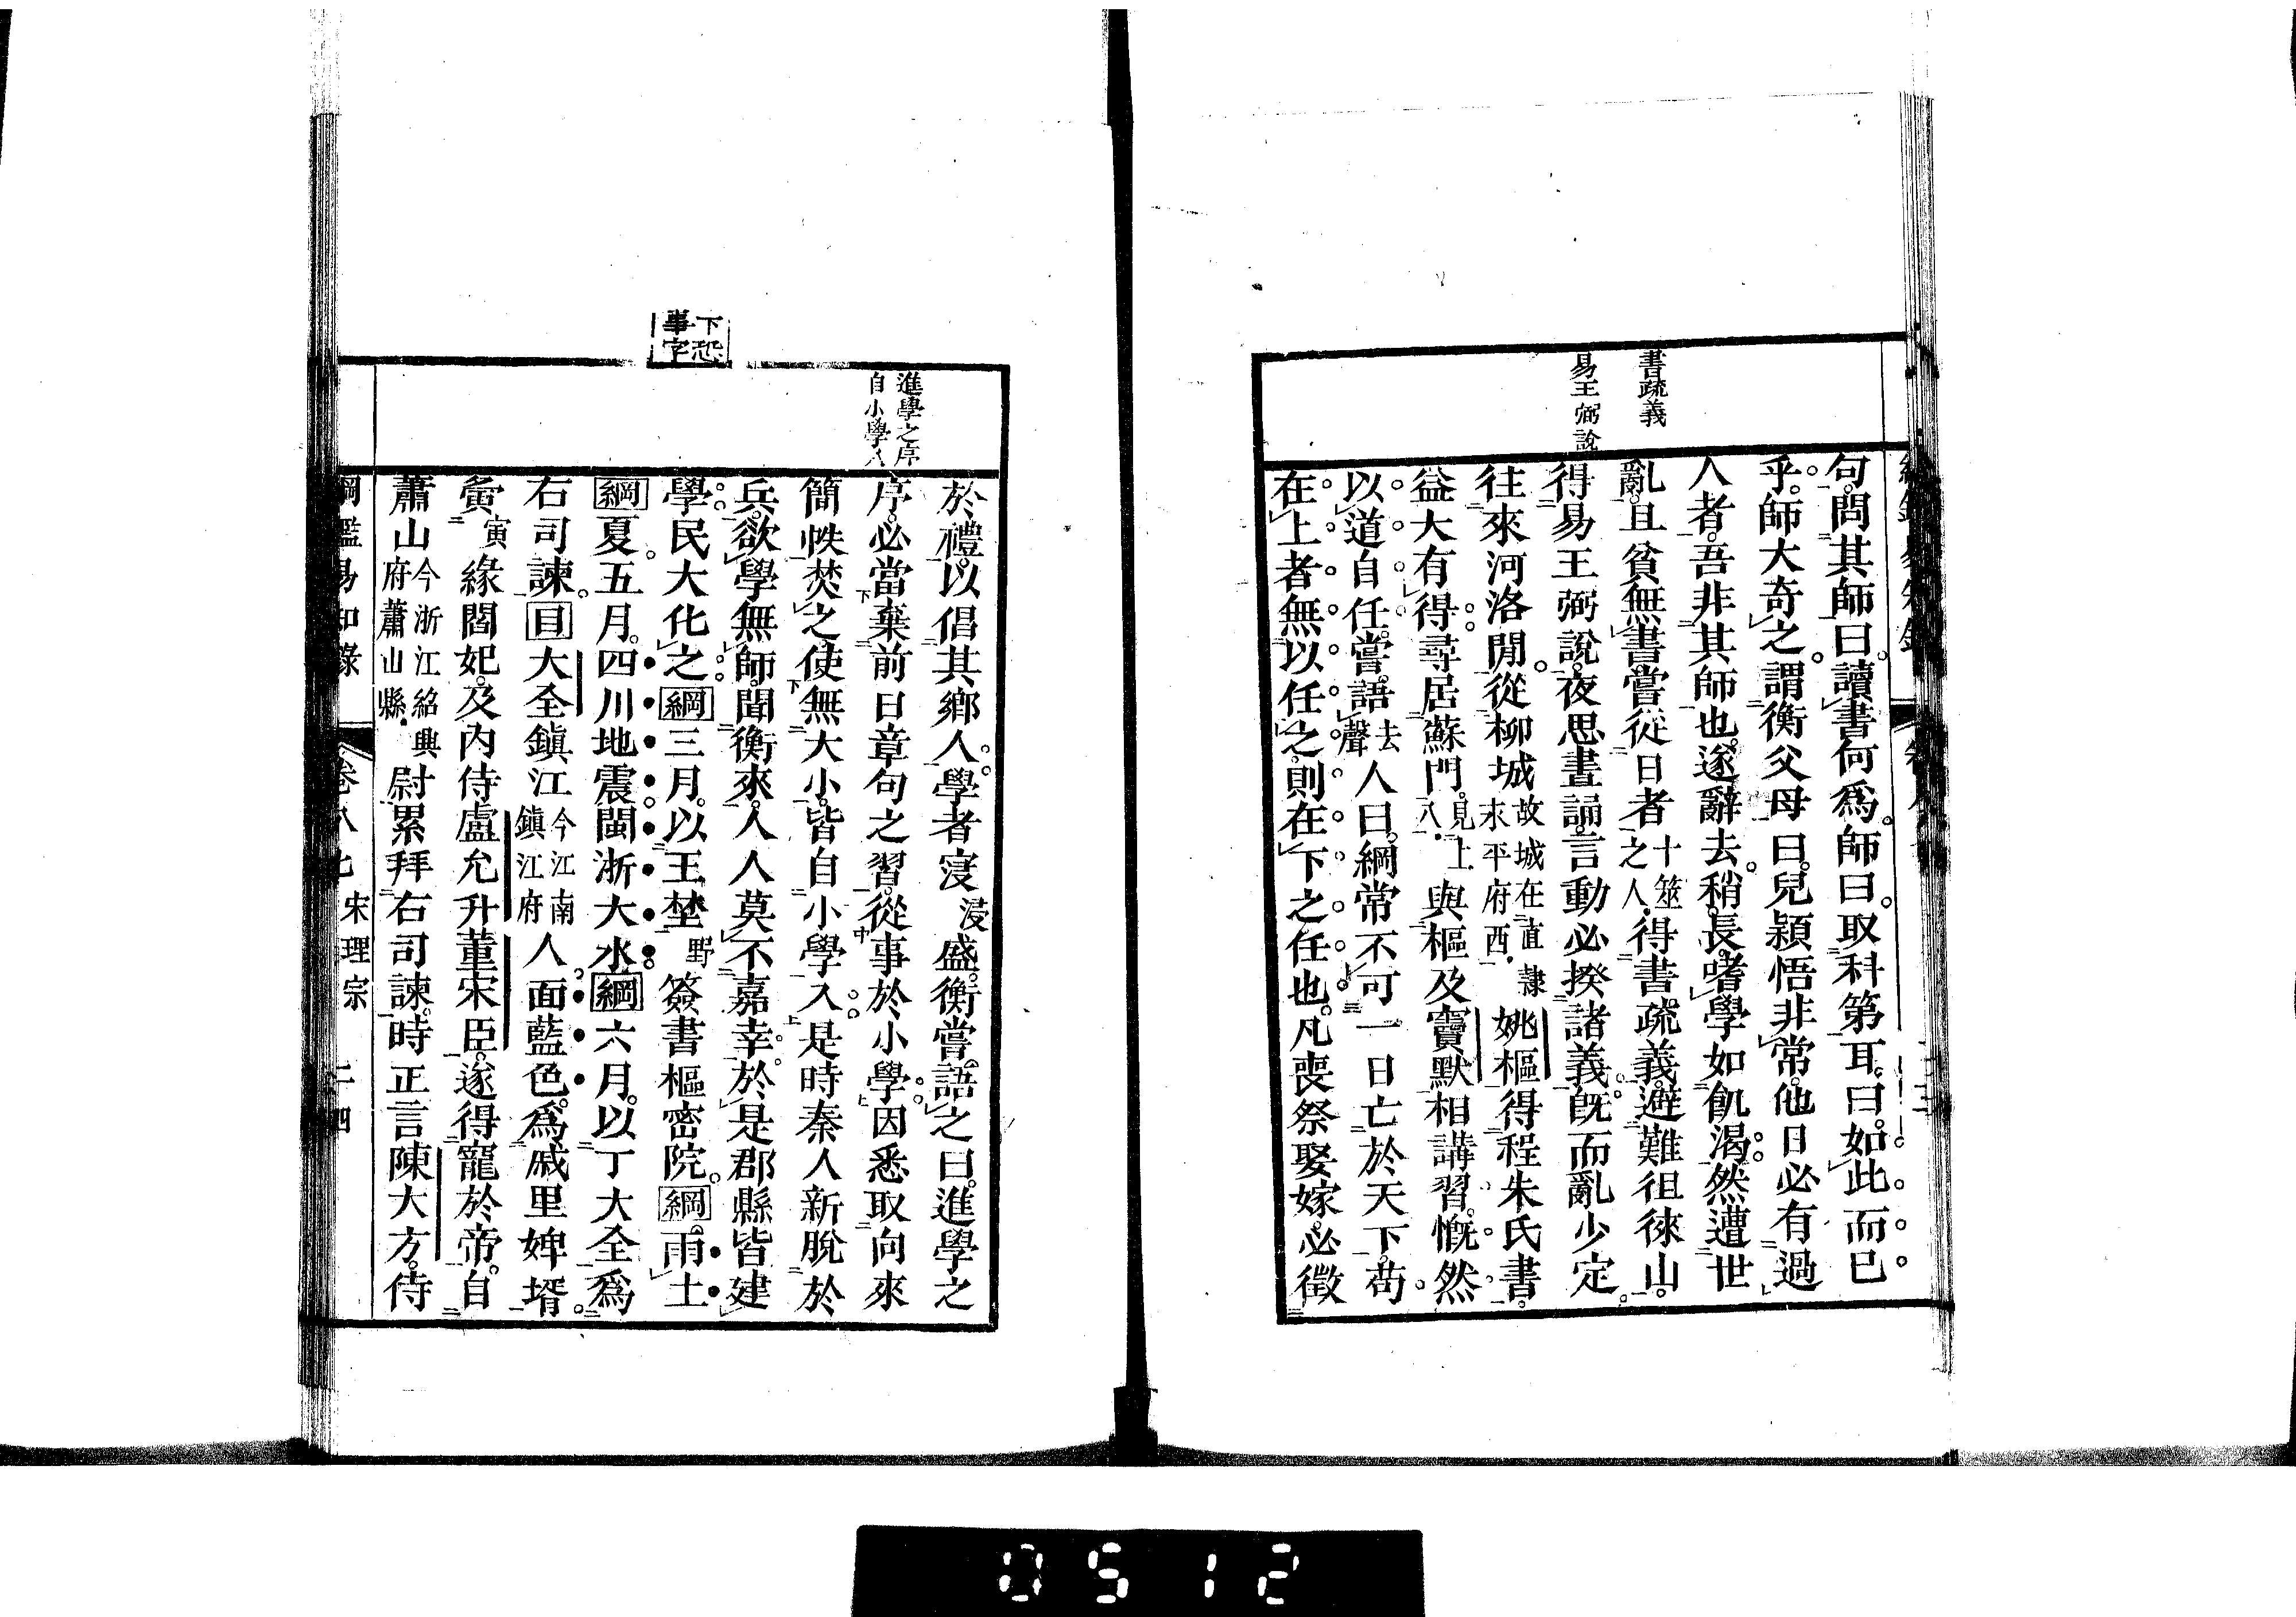 書疏義
易王弼說
句問其師曰讀書何爲師曰取科第耳曰如此而已
乎師大奇之謂衡父母曰兒穎悟非常他日必有過
人者吾非其師也遂辭去稍長嗜學如飢渴然遭世
亂且貧無書嘗從日者十筮之人得書疏義避難徂徠山
得易王弼說夜思晝誦言動必揆諸義旣而亂少定
往來河洛閒從柳城故城在直隸永平府西姚樞得程朱氏書
益大有得尋居蘇門見上八與樞及竇默相講習慨然
以道自任嘗語去聲人曰綱常不可一日亡於天下苟
在上者無以任之則在下之任也凡喪祭娶嫁必徵
下恐
事字
進學之序
自小學入
於禮以倡其鄉人學者寖浸盛衡嘗語之曰進學之
序必當棄前日章句之習從事於小學因悉取向來
簡帙焚之使無大小皆自小學入是時秦人新脫於
兵欲學無師聞衡來人人莫不嘉幸於是郡縣皆建
學民大化之綱三月以王埜野簽書樞密院綱雨土
綱夏五月四川地震閩浙大水綱六月以丁大全爲
右司諫目大全鎭江今江南鎭江府人面藍色爲戚里婢壻
夤寅緣閻妃及內侍盧允升董宋臣遂得寵於帝自
蕭山今浙江紹興府蕭山縣尉累拜右司諫時正言陳大方侍
綱鑑易知錄 卷八七 宋理宗 二四
0512